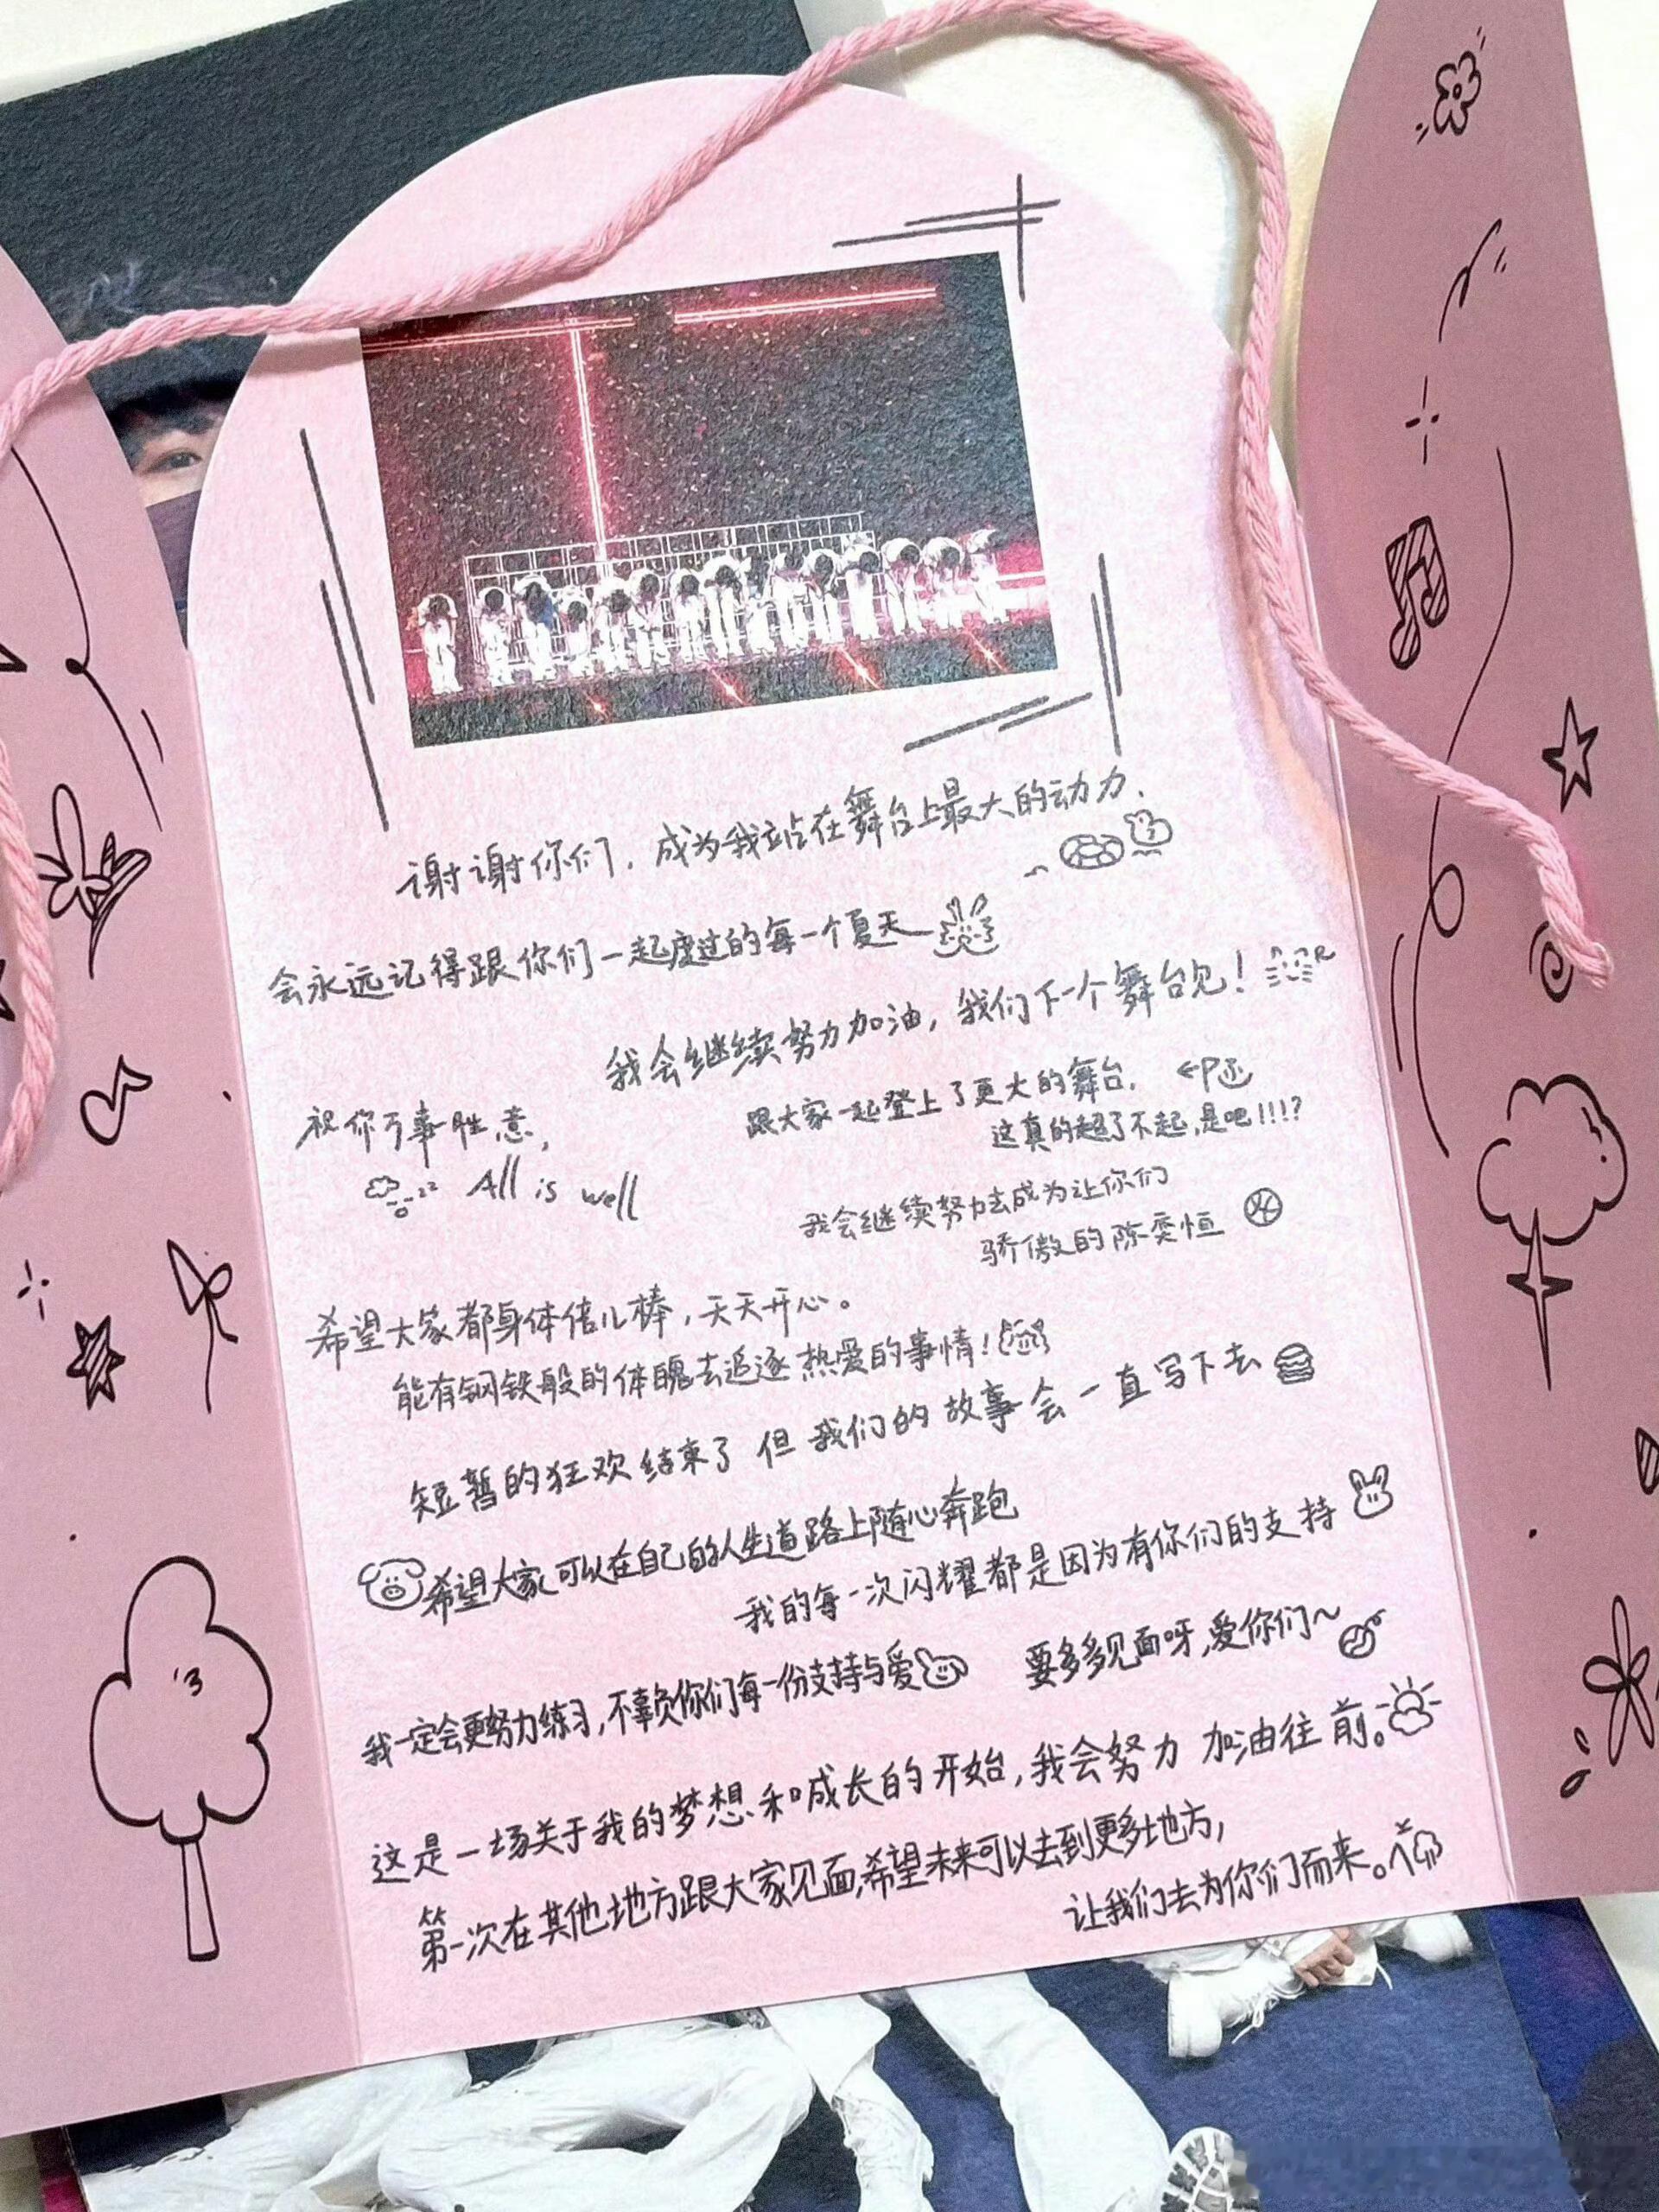 谢谢你们，成为我站在舞台上最大的动力、
会永远记得跟你们一起度过的每一个夏天
我会继续努力加油，我们下一个舞台见！
跟大家一起登上了更大的舞台，
这真的超了不起，是吧！！！？
祝你万事胜意，
All is well
我会继续努力去成为让你们
骄傲的陈奕恒
希望大家都身体倍儿棒，天天开心。
能有钢铁般的体魄去追逐热爱的事情！
短暂的狂欢结束了 但我们的故事会一直写下去
希望大家可以在自己的人生道路上随心奔跑
我的每一次闪耀都是因为有你们的支持
我一定会更努力练习，不辜负你们每一份支持与爱
要多多见面呀，爱你们～
这是一场关于我的梦想和成长的开始，我会努力 加油往前。
第一次在其他地方跟大家见面，希望未来可以去到更多地方，
让我们去为你们而来。